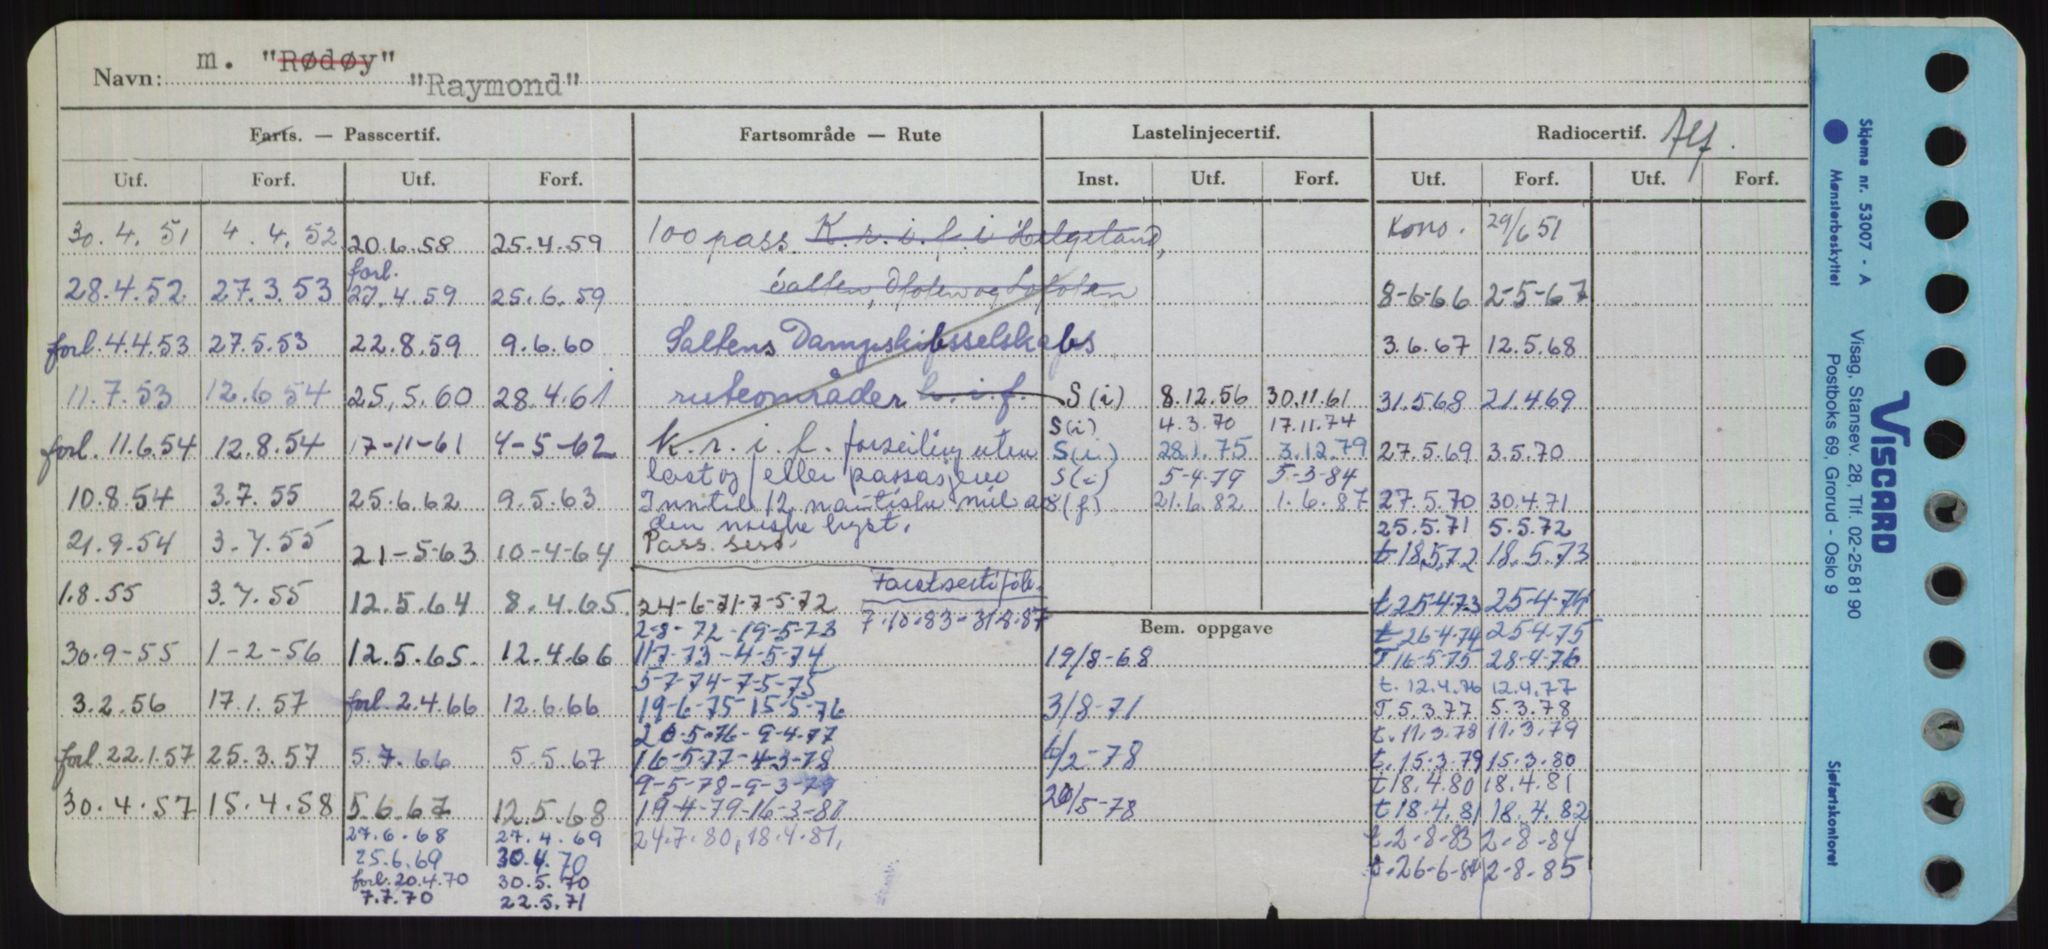 Navn: m. "Rødøy"
"Raymond"
Farts. — Passcertif.
Fartsområde — Rute
Lastelinjecertif.
Radiocertif.
Utf. Forf. Utf. Forf. Inst. Utf. Forf. Utf. Forf. Utf. Forf.
30.4.51 4.4.52 20.6.58 25.4.59 100 pass. K.r.i.f. i Helgeland, Kons. 29/6 51
forl.
28.4.52 27.3.53 27.4.59 25.6.59 Salten, Ofoten og Lofoten 8-6-66 2-5-67
forl. 4.4.53 27.5.53 22.8.59 9.6.60 Saltens Dampskibsselskabs 3.6.67 12.5.68
11.7.53 12.6.54 25.5.60 28.4.61 ruteområder k.i.f. S(i) 8.12.56 30.11.61 31.5.68 21.4.69
S(i) 4.3.70 17.11.74
forl. 11.6.54 12.8.54 17-11-61 4-5-62 k.r.i.f. forseiling uten S(i) 28.1.75 3.12.79 27.5.69 3.5.70
last og/eller passasjerer S(i) 5-4-79 5-3-84
10.8.54 3.7.55 25.6.62 9.5.63 Inntil 12 nautiske mil av S(f) 21.6.82 1.6.87 27.5.70 30.4.71
den norske kyst. 25.5.71 5.5.72
21.9.54 3.7.55 21-5-63 10-4-64 Pass. sert. t 18.5.72 18.5.73
Fartssertifik.
1.8.55 3.7.55 12.5.64 8.4.65 24-6-71-7-5-72 7.10.83-31.8.87 t 25.4.73 25-4-74
2-8-72-19-5-73 Bem. oppgave t 26-4-74 25-4-75
30.9-55 1-2-56 12.5.65. 12.4.66 11-7-73-4-5-74 19/8-68 T 16-5-75 28-4-76
5-7-74-7-5-75 t. 12.4.76 12.4.77
3.2.56 17.1.57 forl. 2.4.66 12.6.66 19-6-75-15-5-76 3/8-71 T. 5.3.77 5.3.78
20-5-76-9-4-77 t. 11.3.78 11.3.79
forl. 22.1.57 25.3.57 5.7.66 5.5.67 16-5-77-4-3-78 6/2-78 t. 15.3.79 15.3.80
9-5-78-9-3-79 t 18.4.80 18.4.81
30.4.57 15.4.58 5.6.67 12.5.68 19-4-79-16-3-80 26/5-78 t 18.4.81 18.4.82
27.6.68 27.4.69 24.7.80, 18.4.81, t. 2-8-83 2-8-84
25.6.69 30.4.70 t. 26-6-84 2-8.85
forl. 20.4.70 30.5.70
7.7.70 22.5.71
Skjema nr. 53007 - A
Mønsterbeskyttet
Visag, Stansev. 28, Tlf. 02-25 81 90
Postboks 69, Grorud - Oslo 9
VISCARD
Sjøfartskontoret